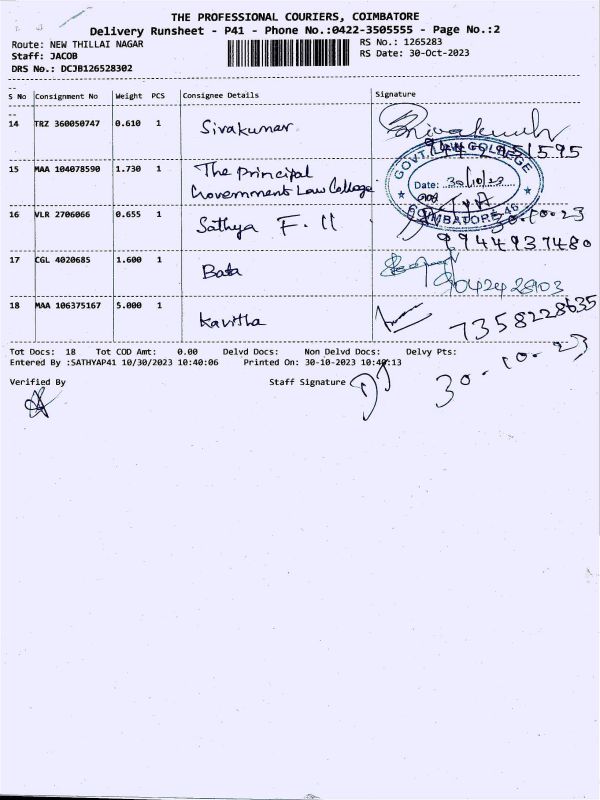 THE PROFESSIONAL COURIERS, COIMBATORE
Delivery Runsheet - P41 - Phone No.:0422-3505555 - Page No.:2
Route: NEW THILLAI NAGAR
RS No.: 1265283
Staff: JACOB
RS Date: 30-Oct-2023
DRS No.: DCJB126528302
S No Consignment No Weight PCS Consignee Details Signature
14 TRZ 360050747 0.610 1 Sivakumar
15 MAA 104078590 1.730 1 The Principal
Government Law College
GOVT. LAW COLLEGE
Date: 30/10/23
COIMBATORE-46
16 VLR 2706066 0.655 1 Sathya F. 11 30.10.23
9944937480
17 CGL 4020685 1.600 1 Bata
9042428903
18 MAA 106375167 5.000 1 Kavitha
7358228635
Tot Docs: 18 Tot COD Amt: 0.00 Delvd Docs: Non Delvd Docs: Delvy Pts:
Entered By :SATHYAP41 10/30/2023 10:40:06 Printed On: 30-10-2023 10:40:13
30.10.23
Verified By Staff Signature